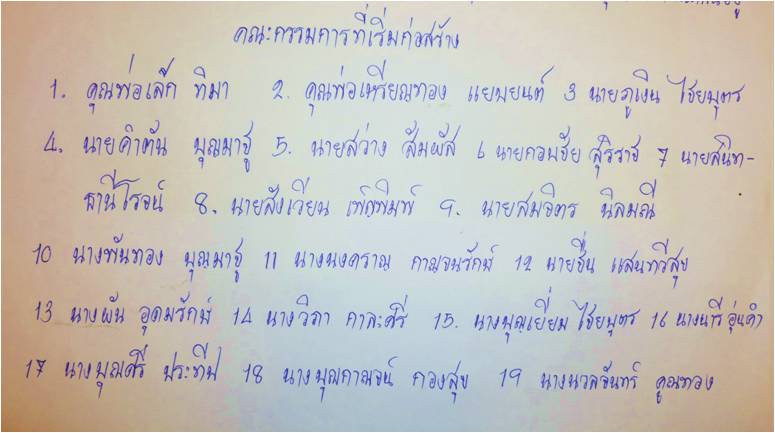 คณะกรรมการที่เริ่มก่อสร้าง
1. คุณพ่อเล็ก ทิมา 2. คุณพ่อเหรียญทอง แยบยนต์ 3 นายภูเงิน ไชยบุตร
4. นายคำตัน บุญมาชู 5. นายสว่าง สัมผัส 6 นายกองชัย สุริราช 7 นายสนิท-
ธานีโรจน์ 8. นายสังเวียน เพ็งพิมพ์ 9. นายสมจิตร นิลมณี
10 นางพันทอง บุญมาชู 11 นางนงคราญ กาญจนรักษ์ 12 นายชื่น แสนทวีสุข
13 นางผัน อุดมรักษ์ 14 นางวิภา กาละศรี 15. นางบุญเยี่ยม ไชยบุตร 16 นางนารี อุ่นคำ
17 นางบุญศรี ประทีป 18 นางบุญกาญจน์ กองสุข 19 นางนวลจันทร์ คูณทอง